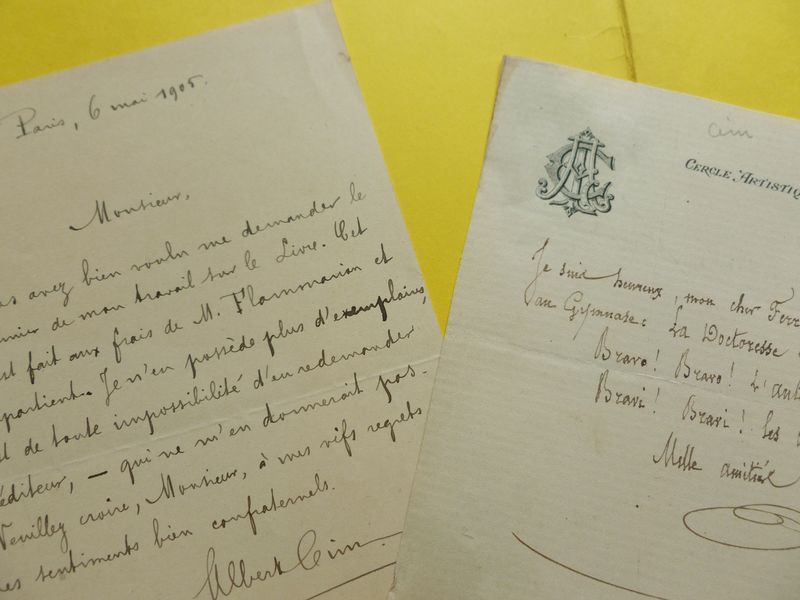 Paris, 6 mai 1905.
Monsieur,
avez bien voulu me demander le
de mon travail sur le Livre. Cet
fait aux frais de M. Flammarion et
Je n'en possède plus d'exemplaires,
de toute impossibilité d'en redemander
éditeur, — qui ne m'en donnerait pas.
Veuillez croire, Monsieur, à mes vifs regrets
sentiments bien confraternels.
Albert Cim
Cim
CERCLE ARTISTIQ
Je suis heureux, mon cher Ferr
au Gymnase: La Doctoresse
Bravo! Bravo! L'aut
Bravi! Bravi! les
Mille amitié